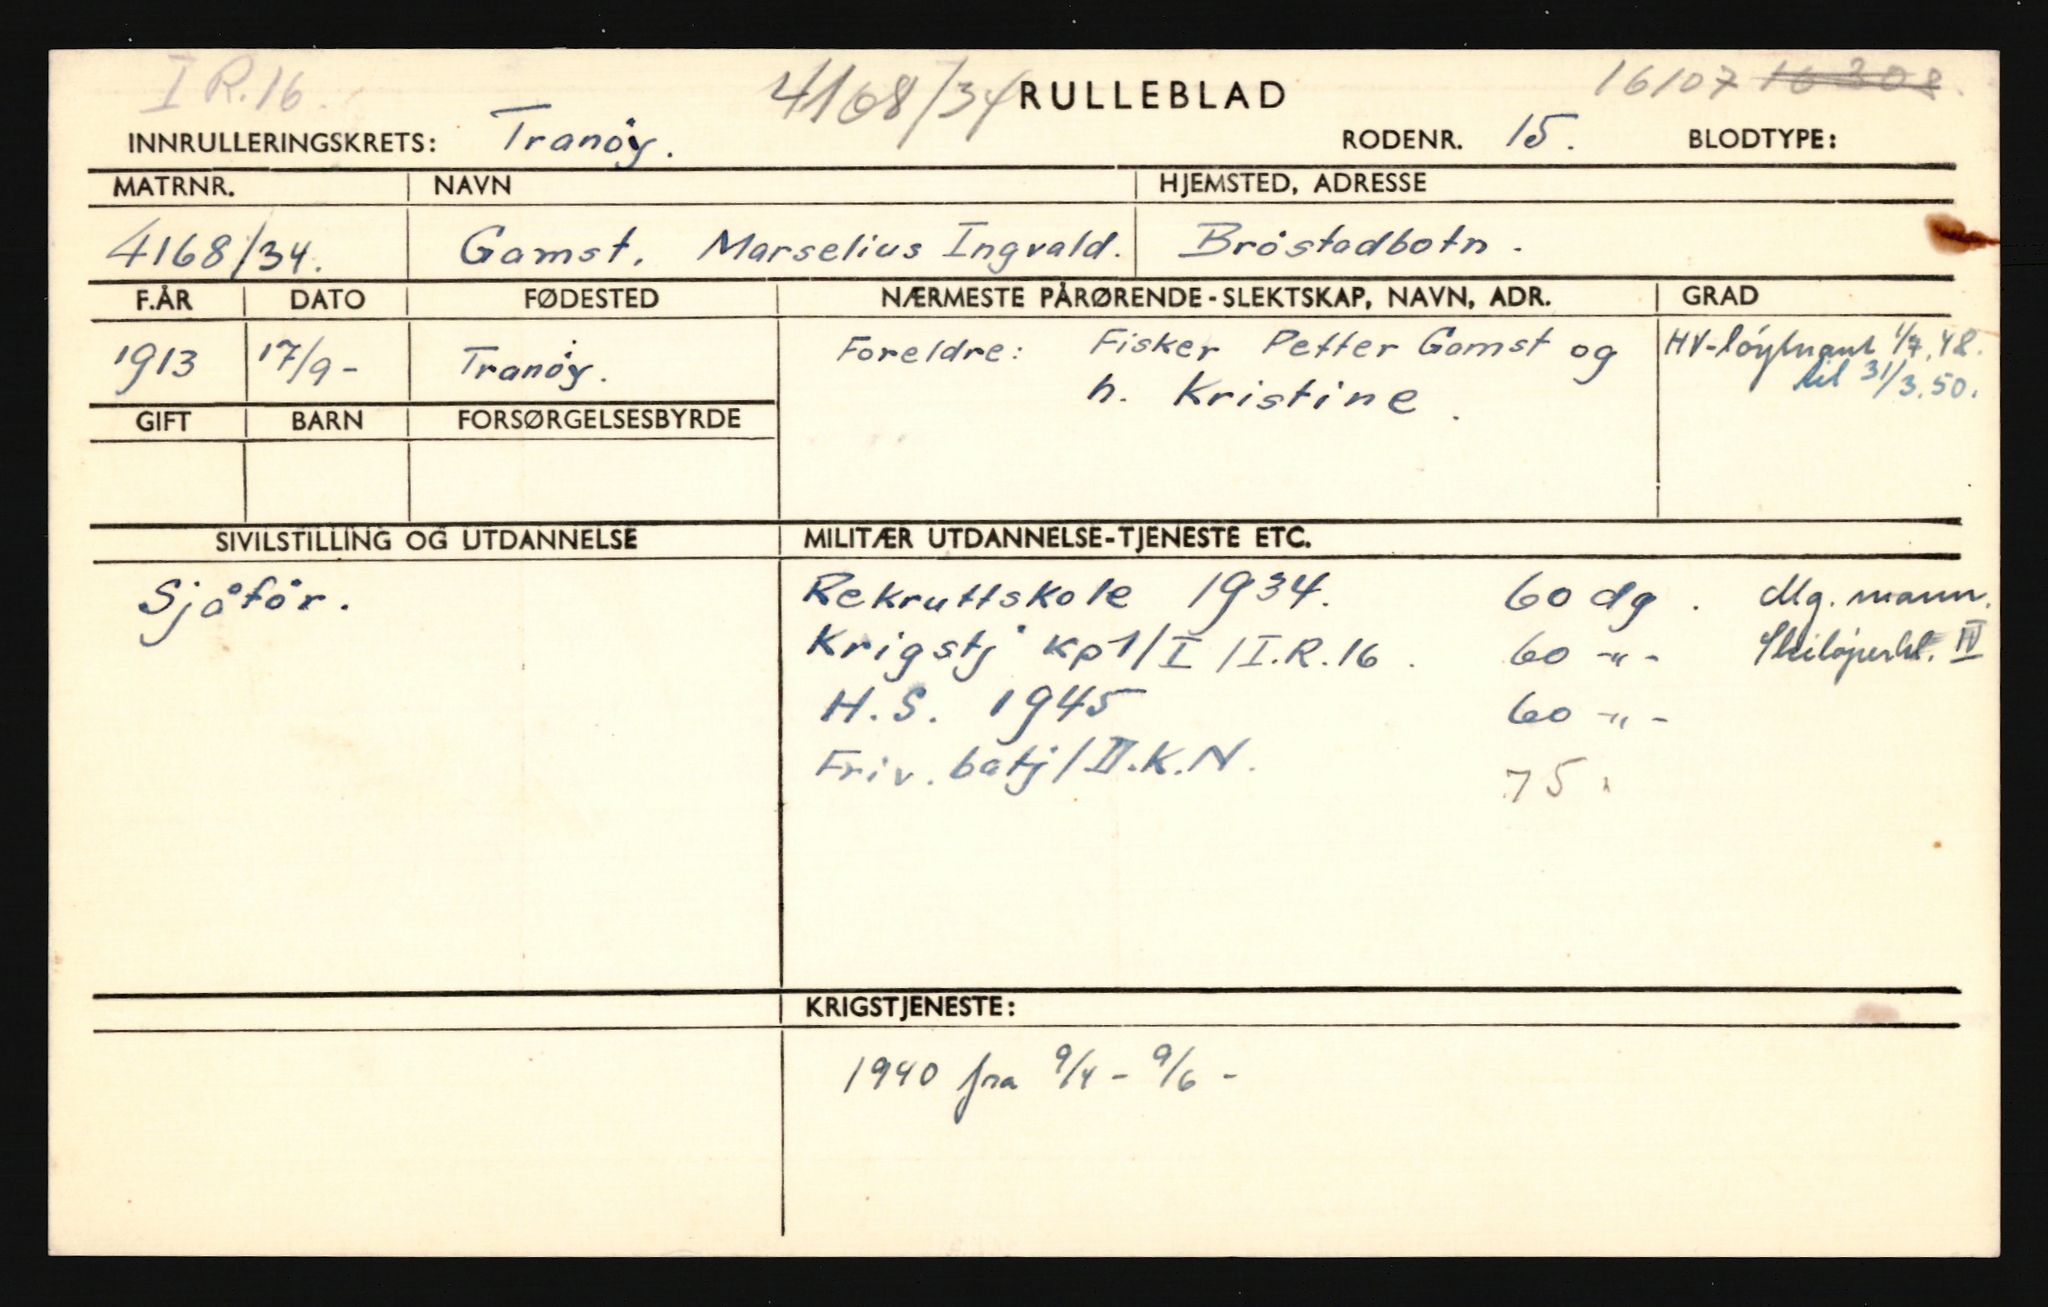 I R.16
4168/34
RULLEBLAD
16107 16308
INNRULLERINGSKRETS: Tranöy.
RODENR. 15.
BLODTYPE:
MATRNR.
NAVN
HJEMSTED, ADRESSE
4168/34.
Gamst, Marselius Ingvald.
Bröstadbotn.
F.ÅR
DATO
FØDESTED
NÆRMESTE PÅRØRENDE - SLEKTSKAP, NAVN, ADR.
GRAD
1913
17/9-
Tranöy.
Foreldre: Fisker Petter Gamst og
h. Kristine.
HV-löytnant 1/7.48.
til 31/3.50.
GIFT
BARN
FORSØRGELSESBYRDE
SIVILSTILLING OG UTDANNELSE
MILITÆR UTDANNELSE-TJENESTE ETC.
Sjåför.
Rekruttskole 1934. 60 dg. Mg. mann.
Krigstj kp1/I/I.R.16. 60 -"- Skilöperkl. IV
H.S. 1945 60 -"-
Friv. batj/II.K.N. 75 "
KRIGSTJENESTE:
1940 fra 9/4 - 9/6 -